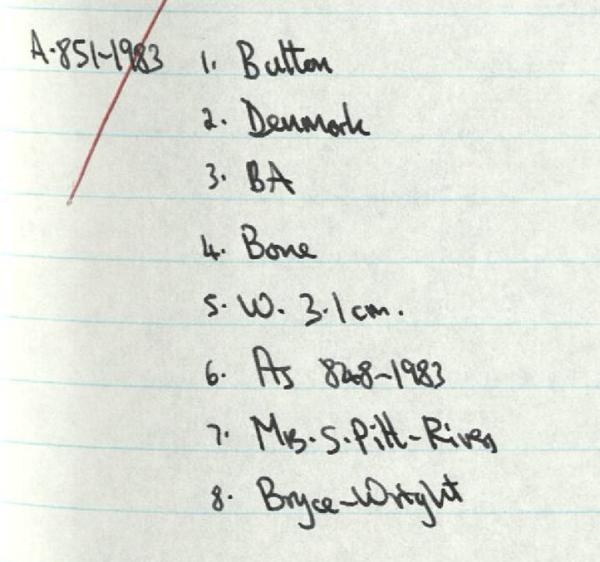 A.851-1983 1. Button
2. Denmark
3. BA
4. Bone
5. W. 3.1cm.
6. As 848-1983
7. Mrs. S. Pitt-Rivers
8. Bryce-Wright